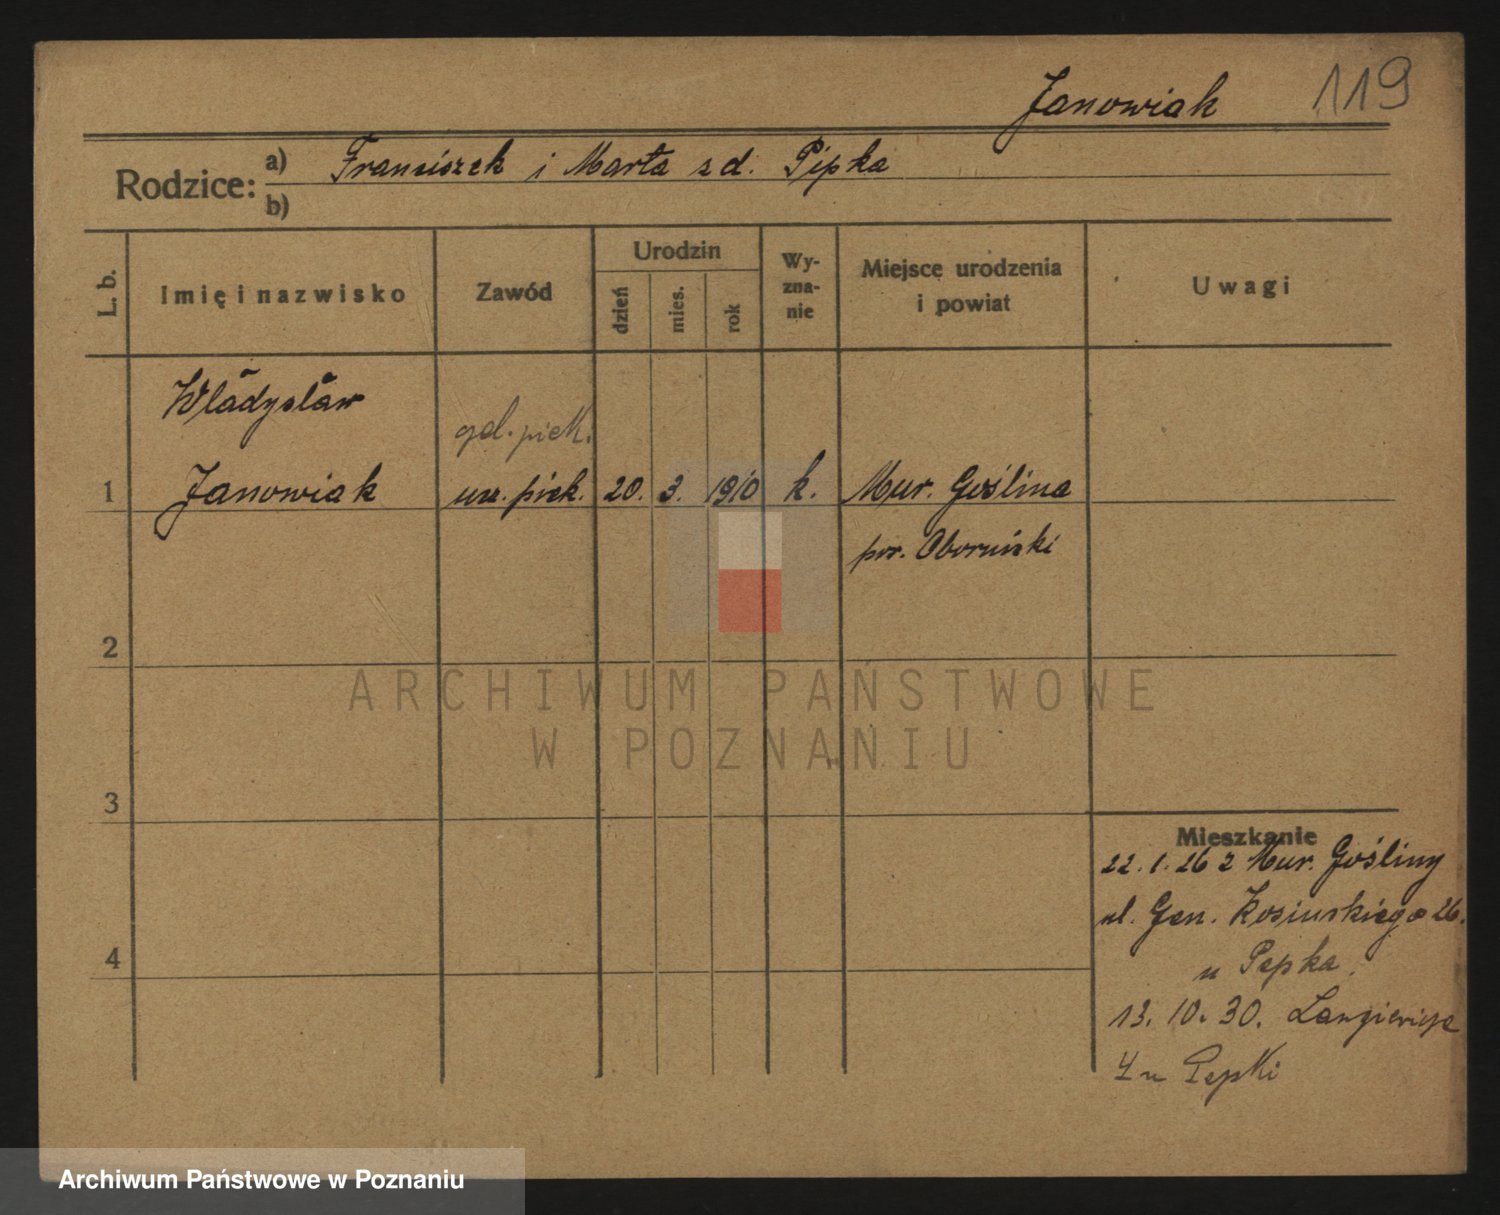 Janowiak 119
Rodzice: a) Franciszek i Marta z d. Pipka
b)
L. b.
Imię i nazwisko
Zawód
Urodzin
dzień
mies.
rok
Wy-
zna-
nie
Miejsce urodzenia
i powiat
Uwagi
Władysław
czel. piek.
1 Janowiak ucz. piek. 20. 3. 1910 k. Mur. Goślina
pow. Obornicki
2
3
4
Mieszkanie
22. 1. 26 z Mur. Gośliny
ul. Gen. Kosińskiego 26.
u Pepka
13. 10. 30. Langiewicza
4 u Pepki
ARCHIWUM PAŃSTWOWE
W POZNANIU
Archiwum Państwowe w Poznaniu